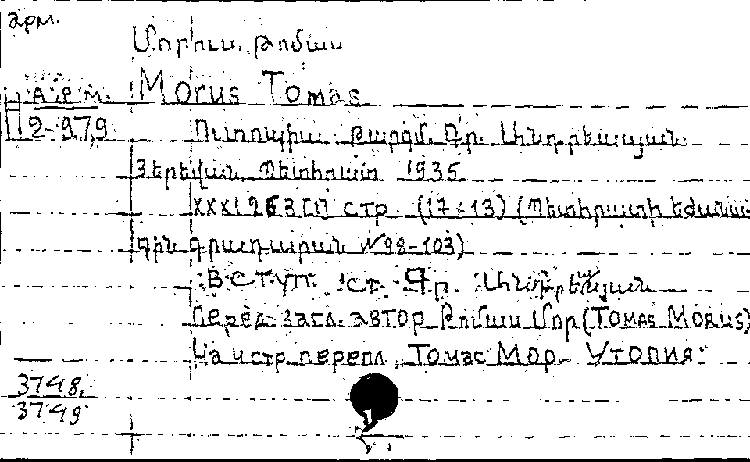 арм.
Մորուս, Թոմաս
А.Р.М. Morus Tomas
2-979 Ուտոպիա. Թարգմ. Գր. Անդրեասյան
Յերեվան, Պետհրատ 1935
XXXI, 263 стр. (17×13) (Պետհրատի եժանա-
գին գրադարան №98-103)
Вступ. ст. Գր. Անդրեասյան
Перед загл. автор Թոմաս Մոր (Tomas Morus)
На четр перепл. Томас Мор. Утопия
3748.
3749